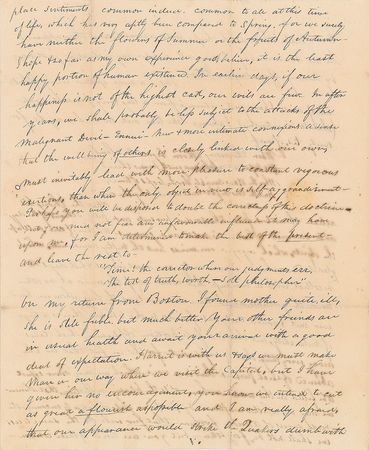 place sentiments common to all at this time
of life, which has very aptly been compared to Spring, for we surely
have neither the flowers of Summer or the fruits of Autumn
hope so far as my own experience goes, believe, it is the least
happy portion of human existence. In earlier days, if our
happiness is not of the highest cast, our evils are few. In after
years, we shall probably be less subject to the attacks of the
Malignant Devil - Ennui - New & more intimate connexions, a sense
that the well being of others is closely linked with our own,
must inevitably lead with more pleasure to constant vigorous
exertions, than when the only object in view is self aggrandisement -
Perhaps you will be disposed to doubt the correctness of this doctrine -
you need not fear any influence it may have
upon me, for I am determined to make the best of the present
and leave the rest to
"Time! the corrector when our judgments err,
The test of truth, worth - sole philosopher"
On my return from Boston, I found mother quite ill,
she is still feeble, but much better. Your other friends are
in usual health and await your arrival with a good
deal of expectation. Harriet is with us & says we must make
in our way, when we visit the Capitol, but I have
given him no encouragement, you know we intend to cut
as great a flourish as possible and I am really afraid
that our appearance would strike the Quakers dumb with